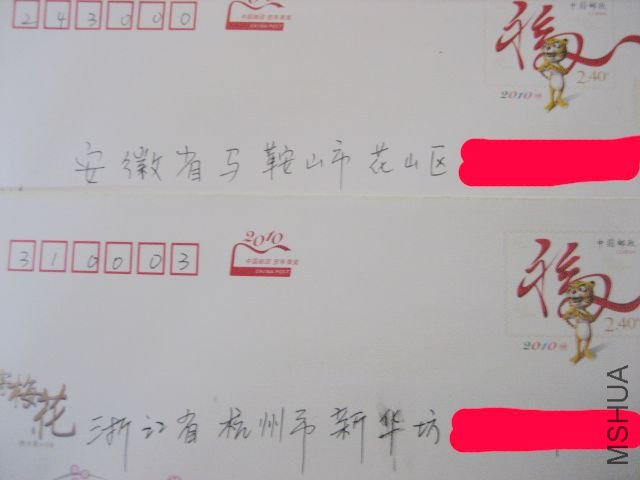 243000
中国邮政 贺年有奖
CHINA POST
福
中国邮政
CHINA
2.40元
2010
安徽省马鞍山市花山区
310003
2010
中国邮政 贺年有奖
CHINA POST
福
中国邮政
CHINA
2.40元
2010
梅花
浙江省杭州市新华坊
MSHUA